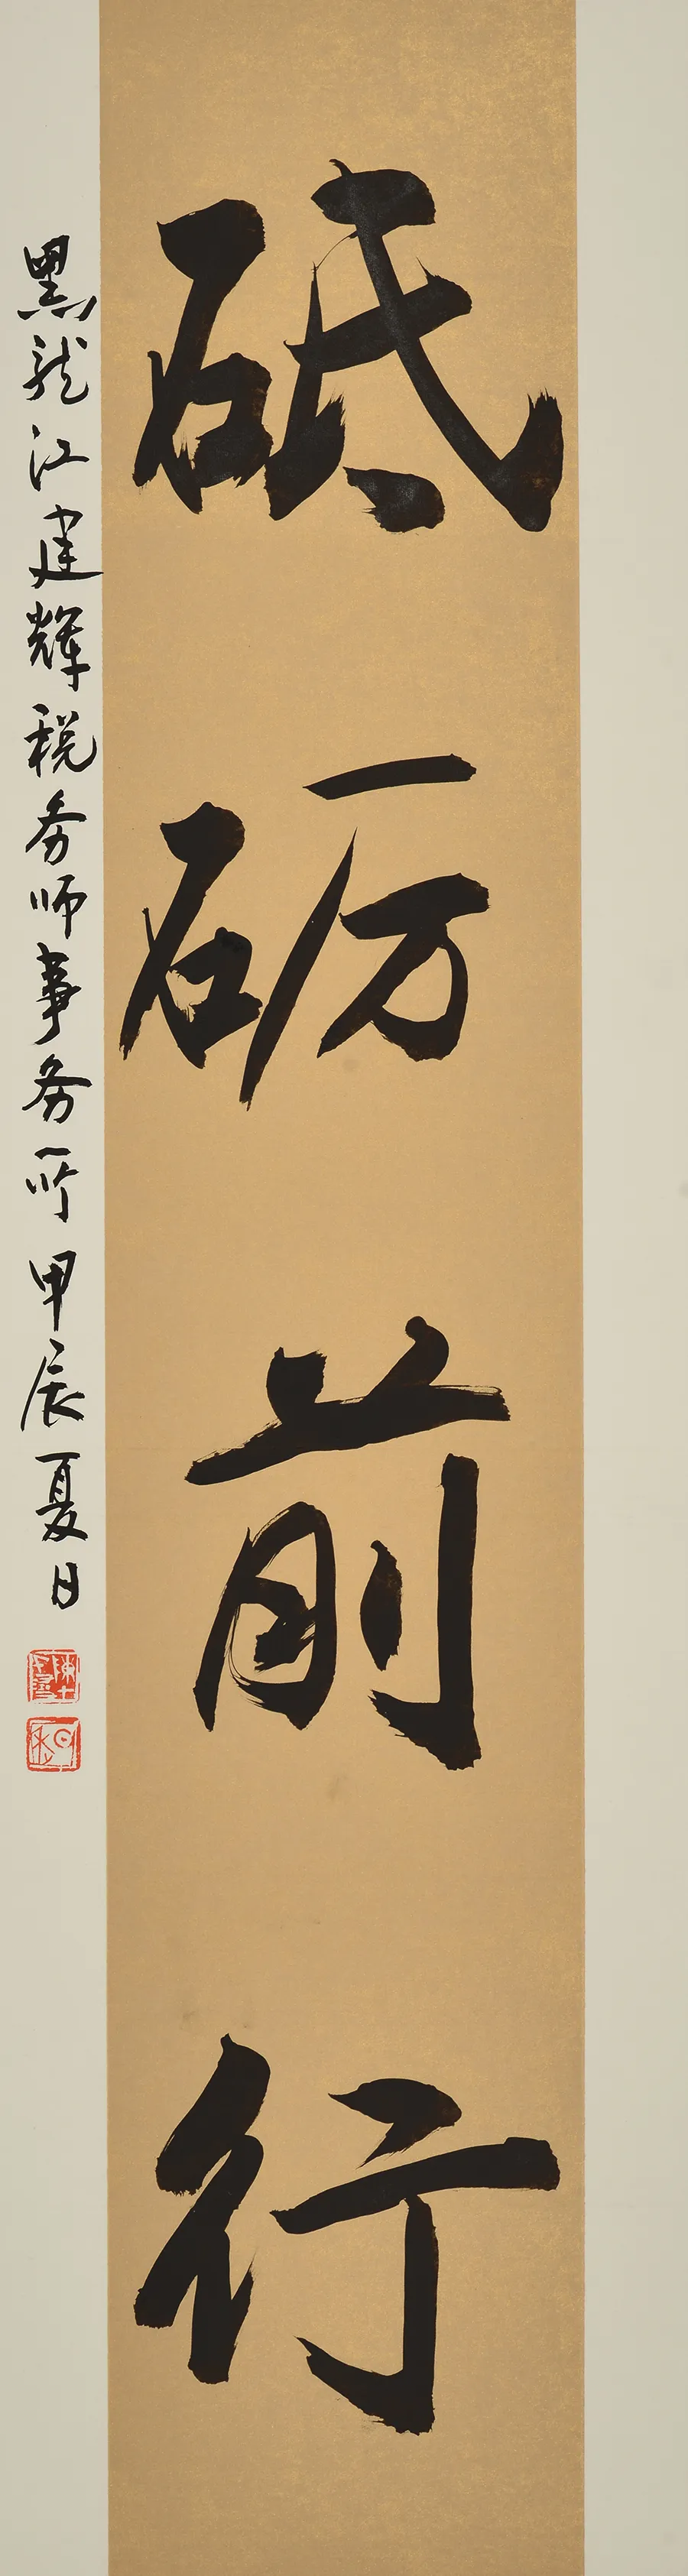 砥砺前行
黑龙江建辉税务师事务所 甲辰夏日